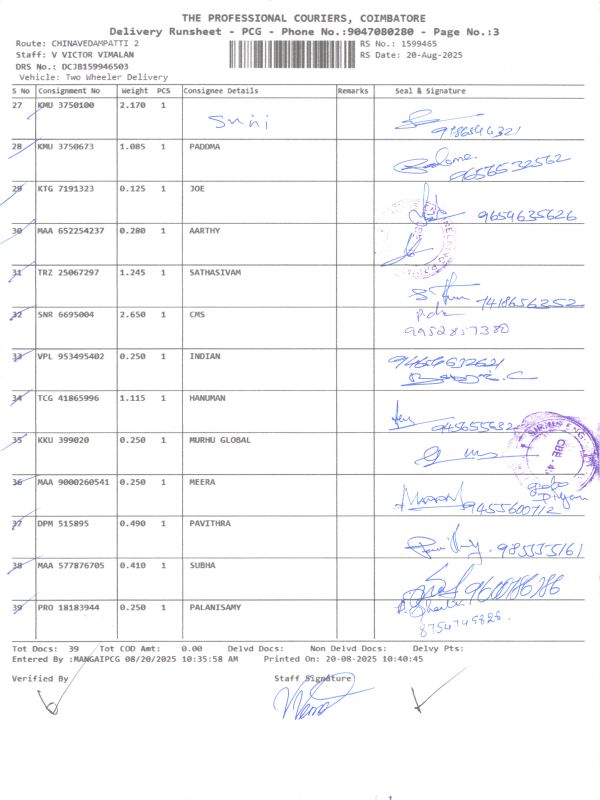 THE PROFESSIONAL COURIERS, COIMBATORE
Delivery Runsheet - PCG - Phone No.:9047080280 - Page No.:3
Route: CHINAVEDAMPATTI 2 RS No.: 1599465
Staff: V VICTOR VIMALAN RS Date: 20-Aug-2025
DRS No.: DCJB159946503
Vehicle: Two Wheeler Delivery
S No Consignment No Weight PCS Consignee Details Remarks Seal & Signature
27 KMU 3750100 2.170 1
9786546321
28 KMU 3750673 1.085 1 PADDMA
9656532562
29 KTG 7191323 0.125 1 JOE
9659635626
30 MAA 652254237 0.280 1 AARTHY
31 TRZ 25067297 1.245 1 SATHASIVAM
7418656352
32 SNR 6695004 2.650 1 CMS
9952857380
33 VPL 953495402 0.250 1 INDIAN
34 TCG 41865996 1.115 1 HANUMAN
945655632
35 KKU 399020 0.250 1 MURHU GLOBAL
36 MAA 9000260541 0.250 1 MEERA
9455600712
37 DPM 515895 0.490 1 PAVITHRA
985555161
38 MAA 577876705 0.410 1 SUBHA
9600786786
39 PRO 18183944 0.250 1 PALANISAMY
8754745828.
Tot Docs: 39 Tot COD Amt: 0.00 Delvd Docs: Non Delvd Docs: Delvy Pts:
Entered By :MANGAIPCG 08/20/2025 10:35:58 AM Printed On: 20-08-2025 10:40:45
Verified By Staff Signature